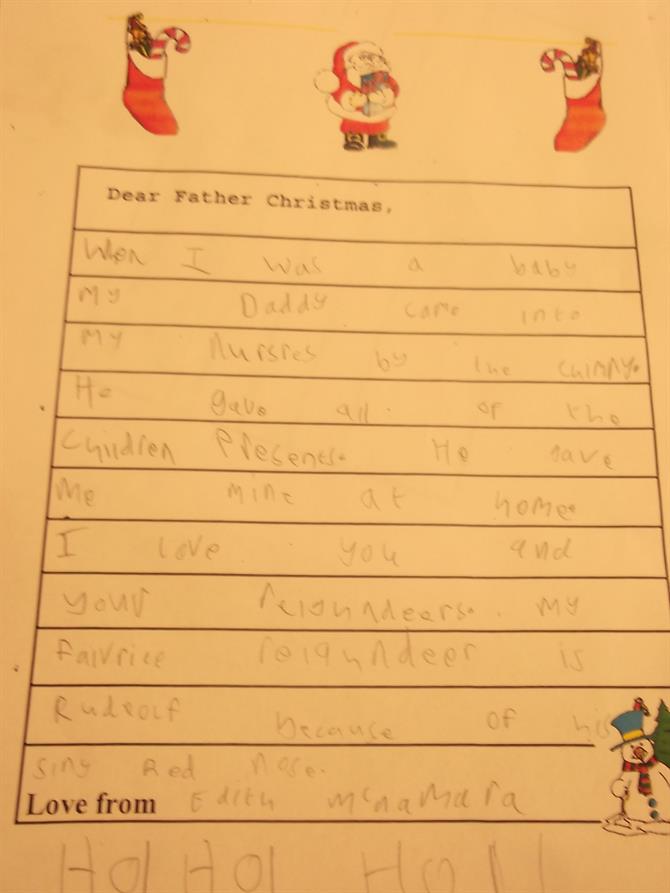 Dear Father Christmas,
When I was a baby
My Daddy came into
My Nursres by the chimny.
He gave all of the
Children Presents. He gave
Me mine at home.
I love you and
your reigundeers. My
faivrice reigundeer is
Rudeolf because of his
siny Red Nose.
Love from Edith McNaMara
Ho! Ho! Ho!!